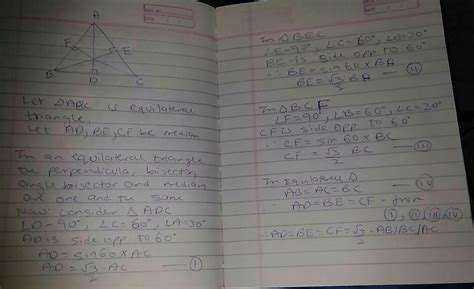 A
F
E
B
D
C
Let △ABC is equilateral
triangle.
Let AD, BE, CF be median
In an equilateral triangle
the perpendicular, bisector,
angle bisector and median
are one and the same
Now: consider △ADC
∠D=90°, ∠C=60°, ∠A=30°
AD is side opp to 60°
AD = Sin60 × AC
AD = √3/2 · AC — (I)
In △BEC
∠E=90°, ∠C=60°, ∠B=30°
BE is side opp to 60°
∴ BE = sin 60 × BA
∴ BE = √3/2 BA — (II)
In △BCF
∠F=90°, ∠B=60°, ∠C=30°
CF is side opp to 60°
∴ CF = sin 60 × BC
CF = √3/2 BC — (III)
In Equilateral △
AB = AC = BC — (IV)
∴ AD = BE = CF - from
I, II, III, IV
∴ AD = BE = CF = √3/2 · AB/BC/AC